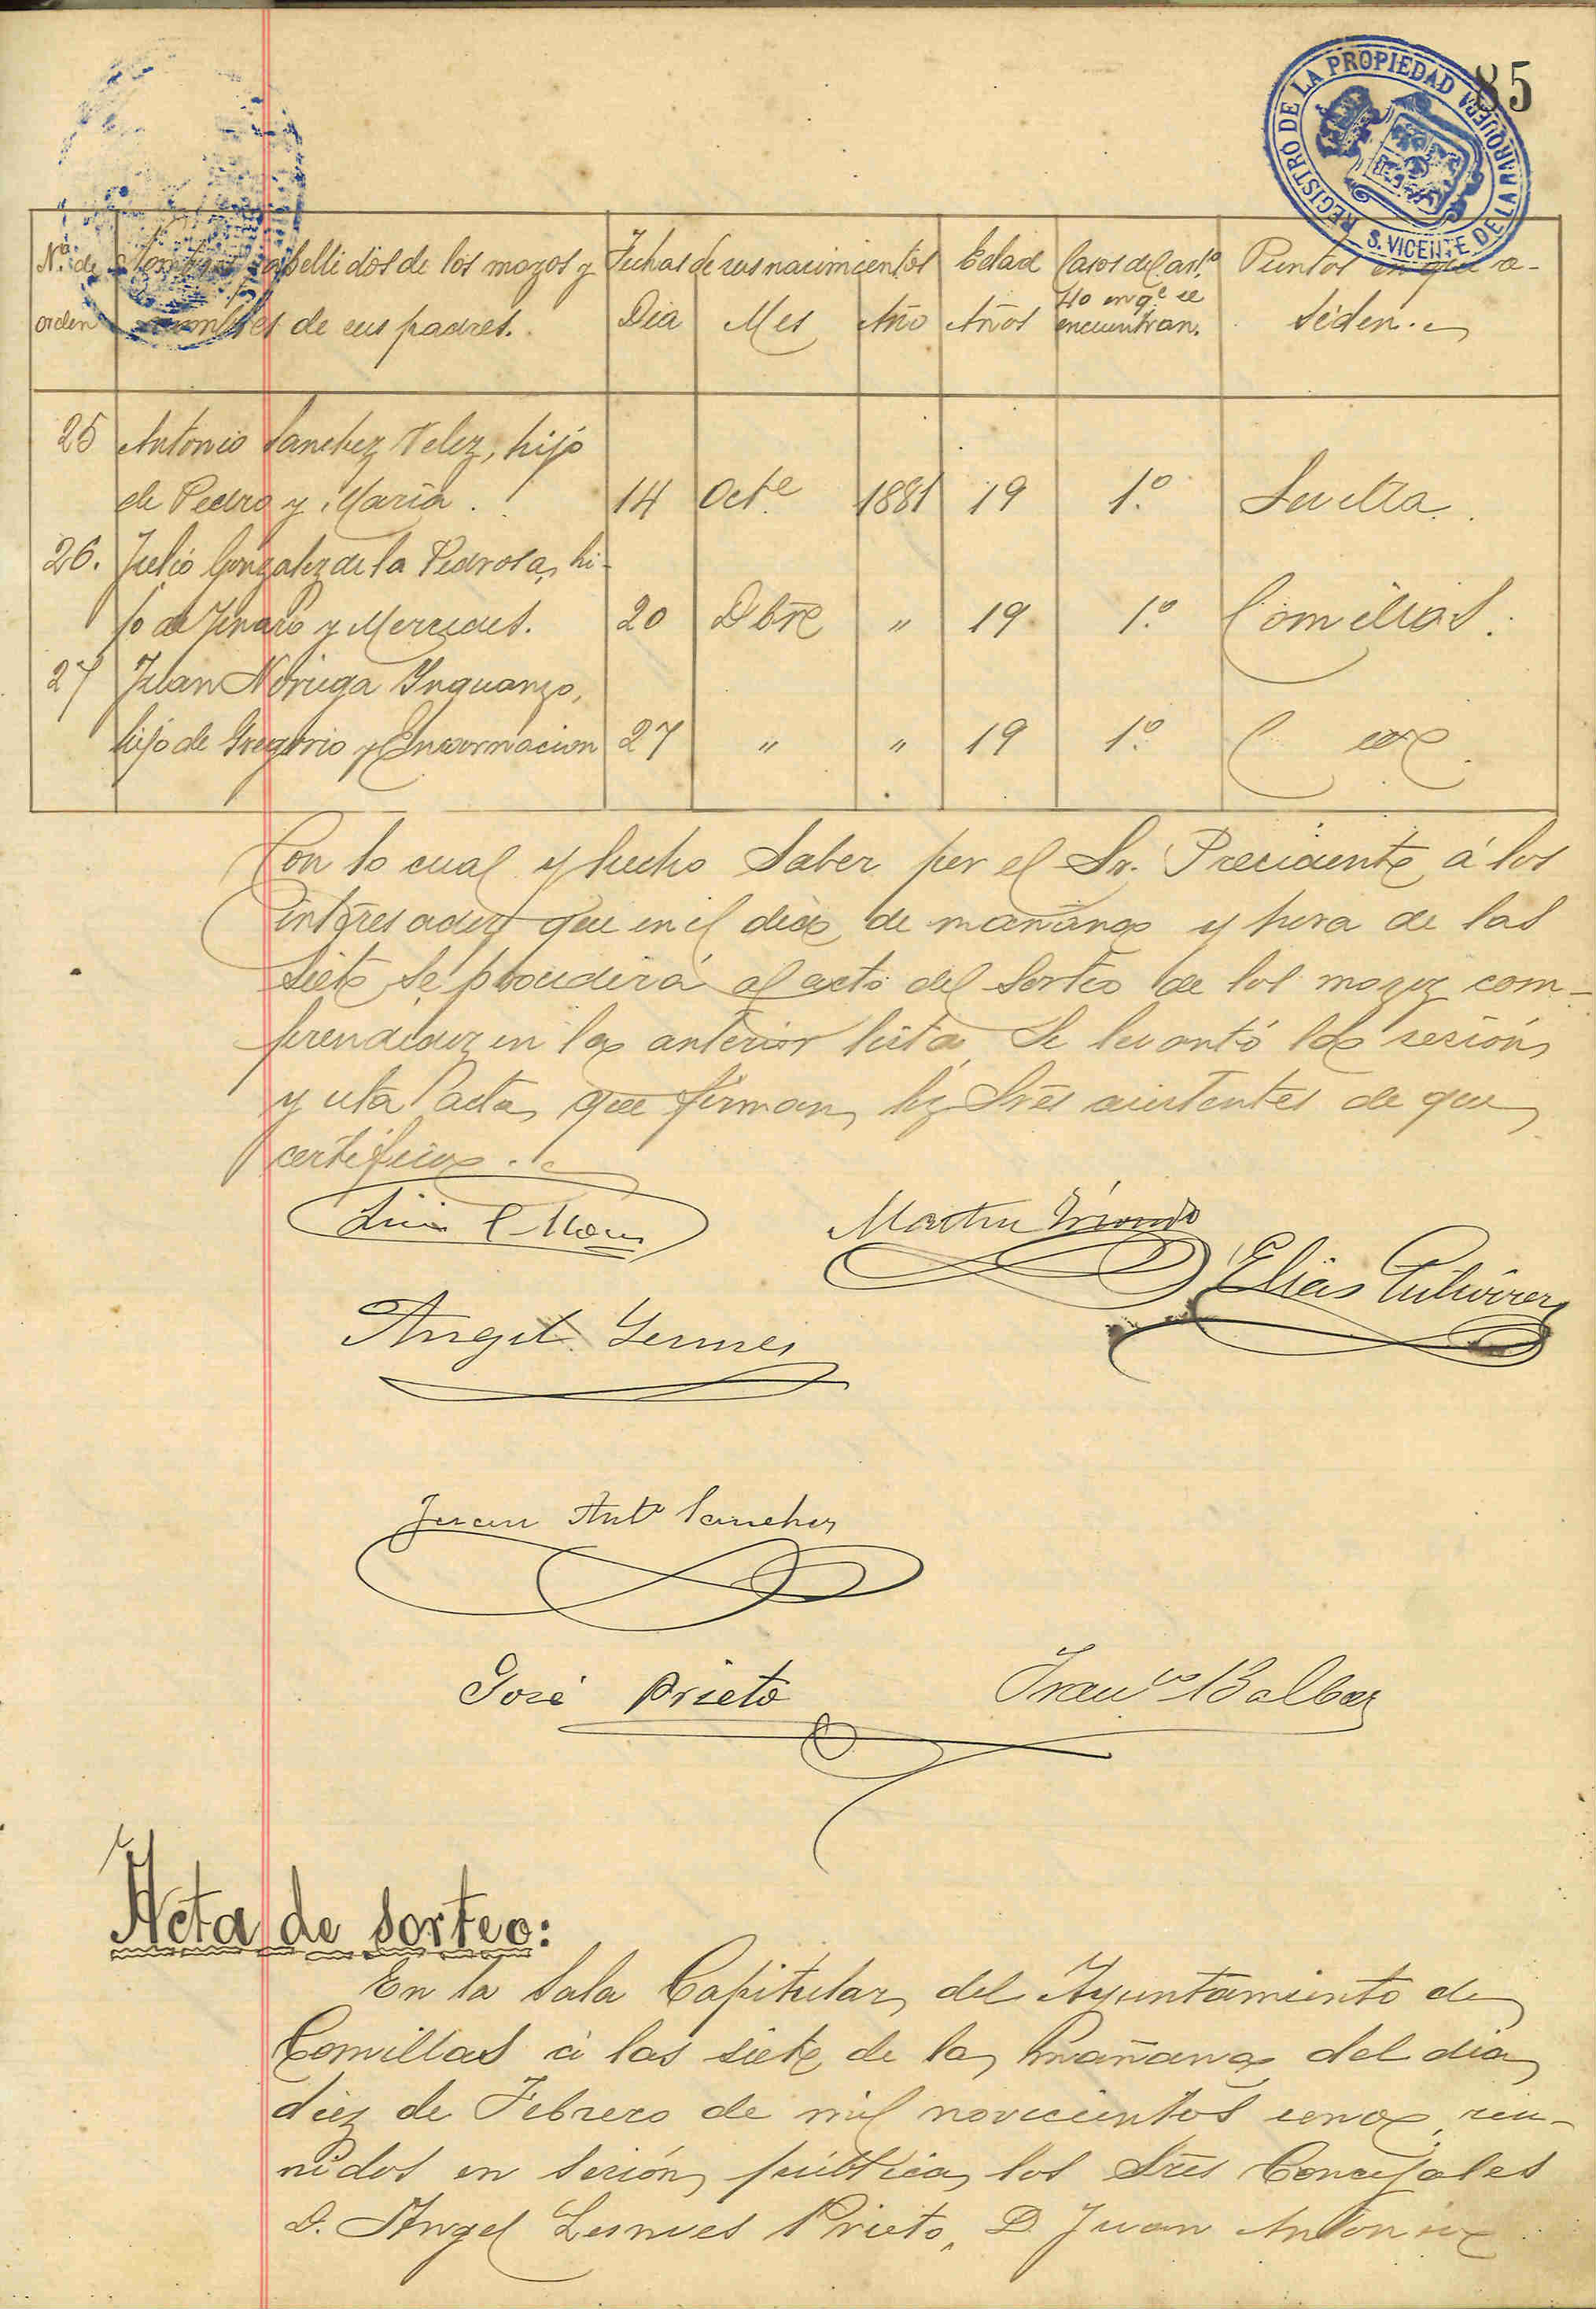 85
REGISTRO DE LA PROPIEDAD
S. VICENTE DE LA BARQUERA
Nº de
orden
apellidos de los mozos y
nombres de sus padres.
Fechas de sus nacimientos
Dia Mes Año
Edad
Años
Casos del artº
40 en qe se
encuentran.
Puntos en que re-
siden.
25 Antonio Sanchez Velez, hijo
de Pedro y Maria. 14 Octe 1881 19 1º
26. Julio Gonzalez de la Pedrosa, hi-
jo de Jenaro y Mercedes. 20 Dbre " 19 1º Comillas.
27 Juan Noriega Ynguanzo,
hijo de Gregorio y Encarnacion 27 " " 19 1º
Con lo cual y hecho saber por el Sr. Presidente á los
interesados que en el dia de mañana y hora de las
siete se procederá al acto del sorteo de los mozos com-
prendidos en la anterior lista, se levantó la sesión
y esta acta, que firman los Sres asistentes de que
certifico.
Martin
Elias Gutierrez
Angel
Juan Antº Sanchez
José Prieto
Franco Balbas
Acta de sorteo:
En la Sala Capitular del Ayuntamiento de
Comillas á las siete de la mañana del dia
diez de Febrero de mil novecientos uno, reu-
nidos en sesión pública los Sres Concejales
D. Angel Prieto, D. Juan Antonio